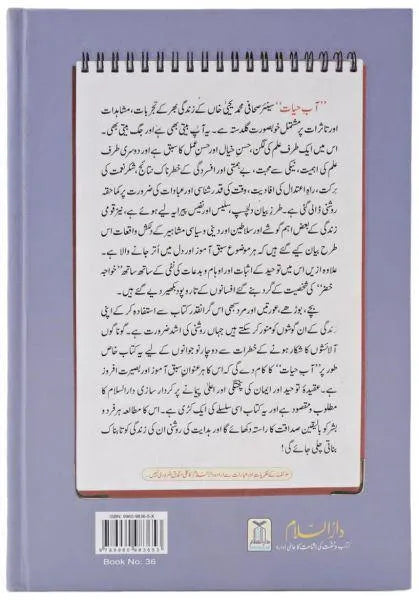 ”آبِ حیات“ سینئر صحافی محمد یحییٰ خاں کے زندگی بھر کے تجربات، مشاہدات
اور تاثرات پر مشتمل خوبصورت گلدستہ ہے۔ یہ آپ بیتی بھی ہے اور جگ بیتی بھی۔
اس میں ایک طرف علم کی لگن، حسنِ خیال اور حسنِ عمل کا سبق ہے اور دوسری طرف
علم کی اہمیت، نیکی سے محبت، بے ہمتی اور افسردگی کے خطرناک نتائج، شکرِ نعمت کی
برکت، راہِ اعتدال کی افادیت، وقت کی قدر شناسی اور عبادات کی ضرورت پر کماحقہ
روشنی ڈالی گئی ہے۔ طرزِ بیان دلچسپ، سلیس اور نفیس پیرایہ لیے ہوئے ہے، نیز قومی
زندگی کے بعض اہم گوشے اور سلاطین اور دینی و سیاسی مشاہیر کے دلکش واقعات اس
طرح بیان کیے گئے ہیں کہ ہر موضوع سبق آموز اور دل میں اُتر جانے والا ہے۔
علاوہ ازیں اس میں توحید کے اثبات اور اوہام و بدعات کی نفی کے ساتھ ساتھ ”خواجہ
خضر“ کی شخصیت کے گرد بنے گئے افسانوں کے تار و پود بکھیر دیے گئے ہیں۔
بچے، بوڑھے، عورتیں اور مرد سبھی اس گرانقدر کتاب سے استفادہ کر کے اپنی
زندگی کے ان گوشوں کو منور کر سکتے ہیں جہاں روشنی کی اشد ضرورت ہے۔ گوناگوں
آلائشوں کا شکار ہونے کے خطرات سے دوچار نوجوانوں کے لیے یہ کتاب خاص
طور پر ”آبِ حیات“ کا کام دے گی کہ اس کا ہر عنوان سبق آموز اور بصیرت افروز
ہے۔ عقیدۂ توحید اور ایمان کی پختگی اور اعلیٰ پیمانے پر کردار سازی دارالسلام کا
مطلوب و مقصود ہے اور یہ کتاب اسی سلسلے کی ایک کڑی ہے۔ اس کا مطالعہ ہر فرد و
بشر کو بالیقین صداقت کا راستہ دکھائے گا اور ہدایت کی روشنی ان کی زندگی کو تابناک
بناتی چلی جائے گی!
دارالسلام
کتاب و سنت کی اشاعت کا عالمی ادارہ
Book No: 36